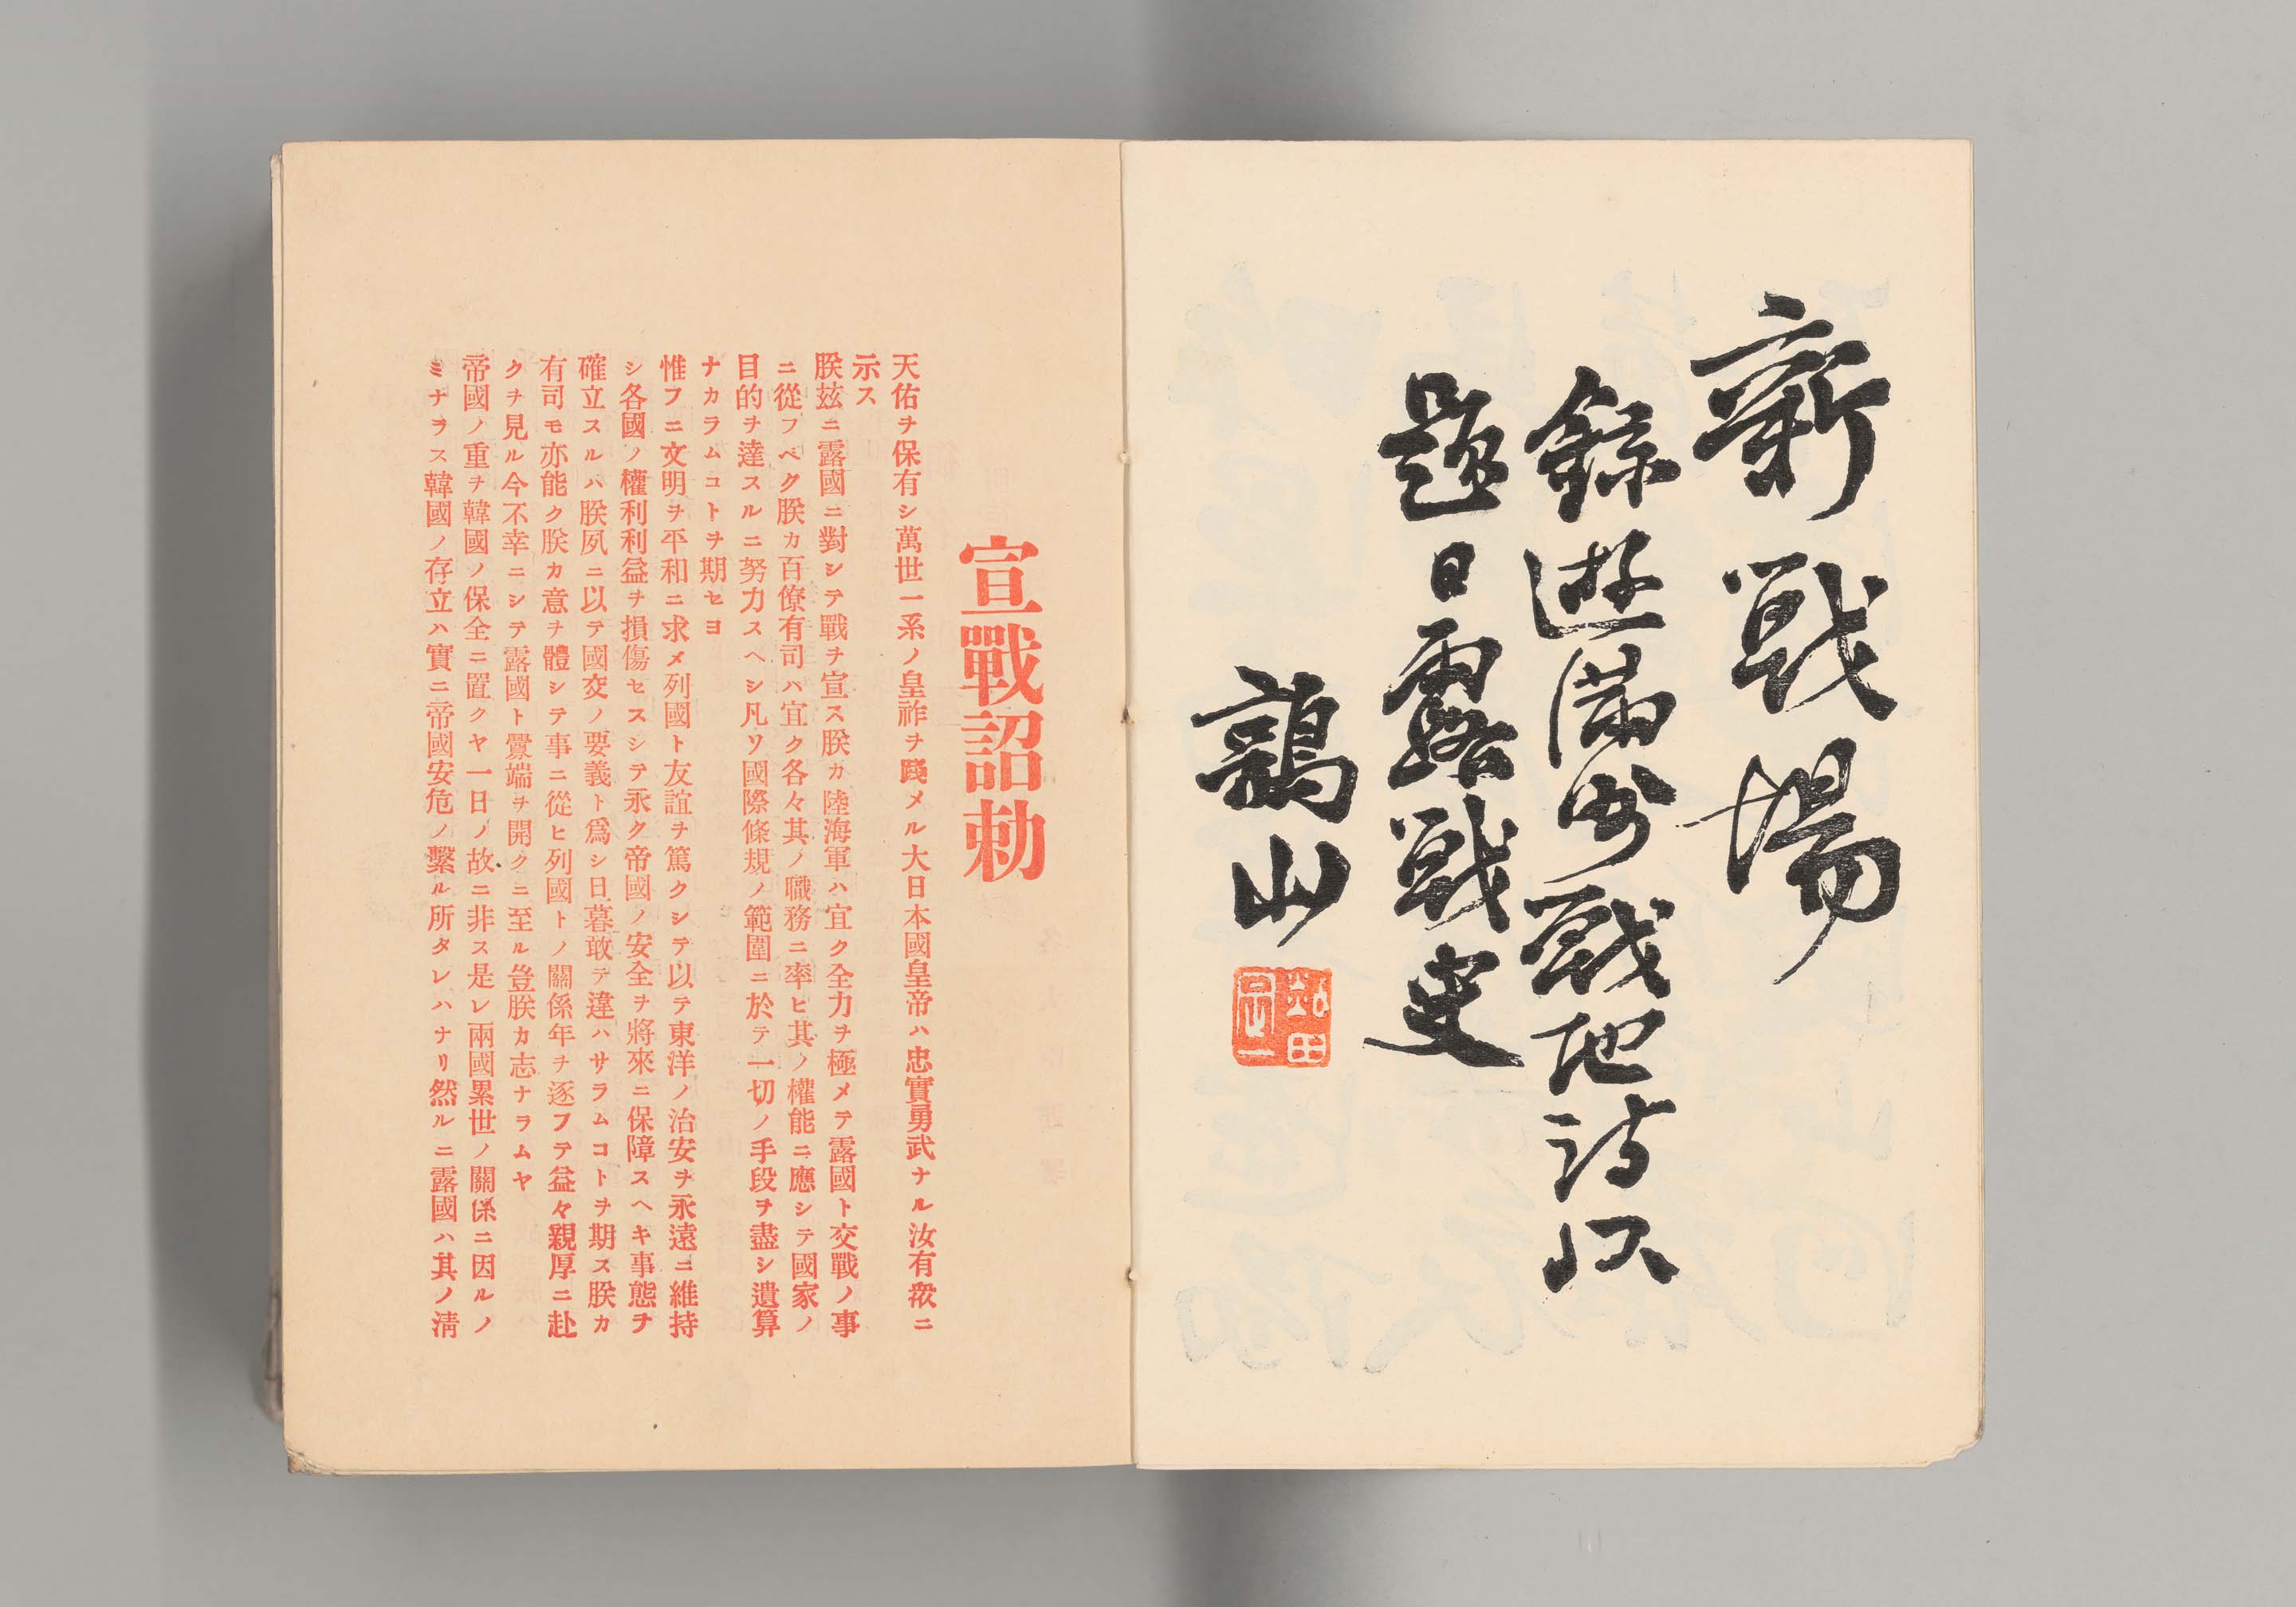 新戦場
録遊満州戦地詩以
題日露戦史
鶉山
宣戰詔勅
天佑ヲ保有シ萬世一系ノ皇祚ヲ踐メル大日本國皇帝ハ忠實勇武ナル汝有衆ニ
示ス
朕玆ニ露國ニ對シテ戰ヲ宣ス朕カ陸海軍ハ宜ク全力ヲ極メテ露國ト交戰ノ事
ニ從フベク朕カ百僚有司ハ宜ク各々其ノ職務ニ率ヒ其ノ權能ニ應シテ國家ノ
目的ヲ達スルニ努力スヘシ凡ソ國際條規ノ範圍ニ於テ一切ノ手段ヲ盡シ遺算
ナカラムコトヲ期セヨ
惟フニ文明ヲ平和ニ求メ列國ト友誼ヲ篤クシテ以テ東洋ノ治安ヲ永遠ニ維持
シ各國ノ權利利益ヲ損傷セスシテ永ク帝國ノ安全ヲ將來ニ保障スヘキ事態ヲ
確立スルハ朕夙ニ以テ國交ノ要義ト爲シ日暮敢テ違ハサラムコトヲ期ス朕カ
有司モ亦能ク朕カ意ヲ體シテ事ニ從ヒ列國トノ關係年ヲ逐フテ益々親厚ニ赴
クヲ見ル今不幸ニシテ露國ト釁端ヲ開クニ至ル豈朕カ志ナラムヤ
帝國ノ重ヲ韓國ノ保全ニ置クヤ一日ノ故ニ非ス是レ兩國累世ノ關係ニ因ルノ
ミナラス韓國ノ存立ハ實ニ帝國安危ノ繫ル所タレハナリ然ルニ露國ハ其ノ淸